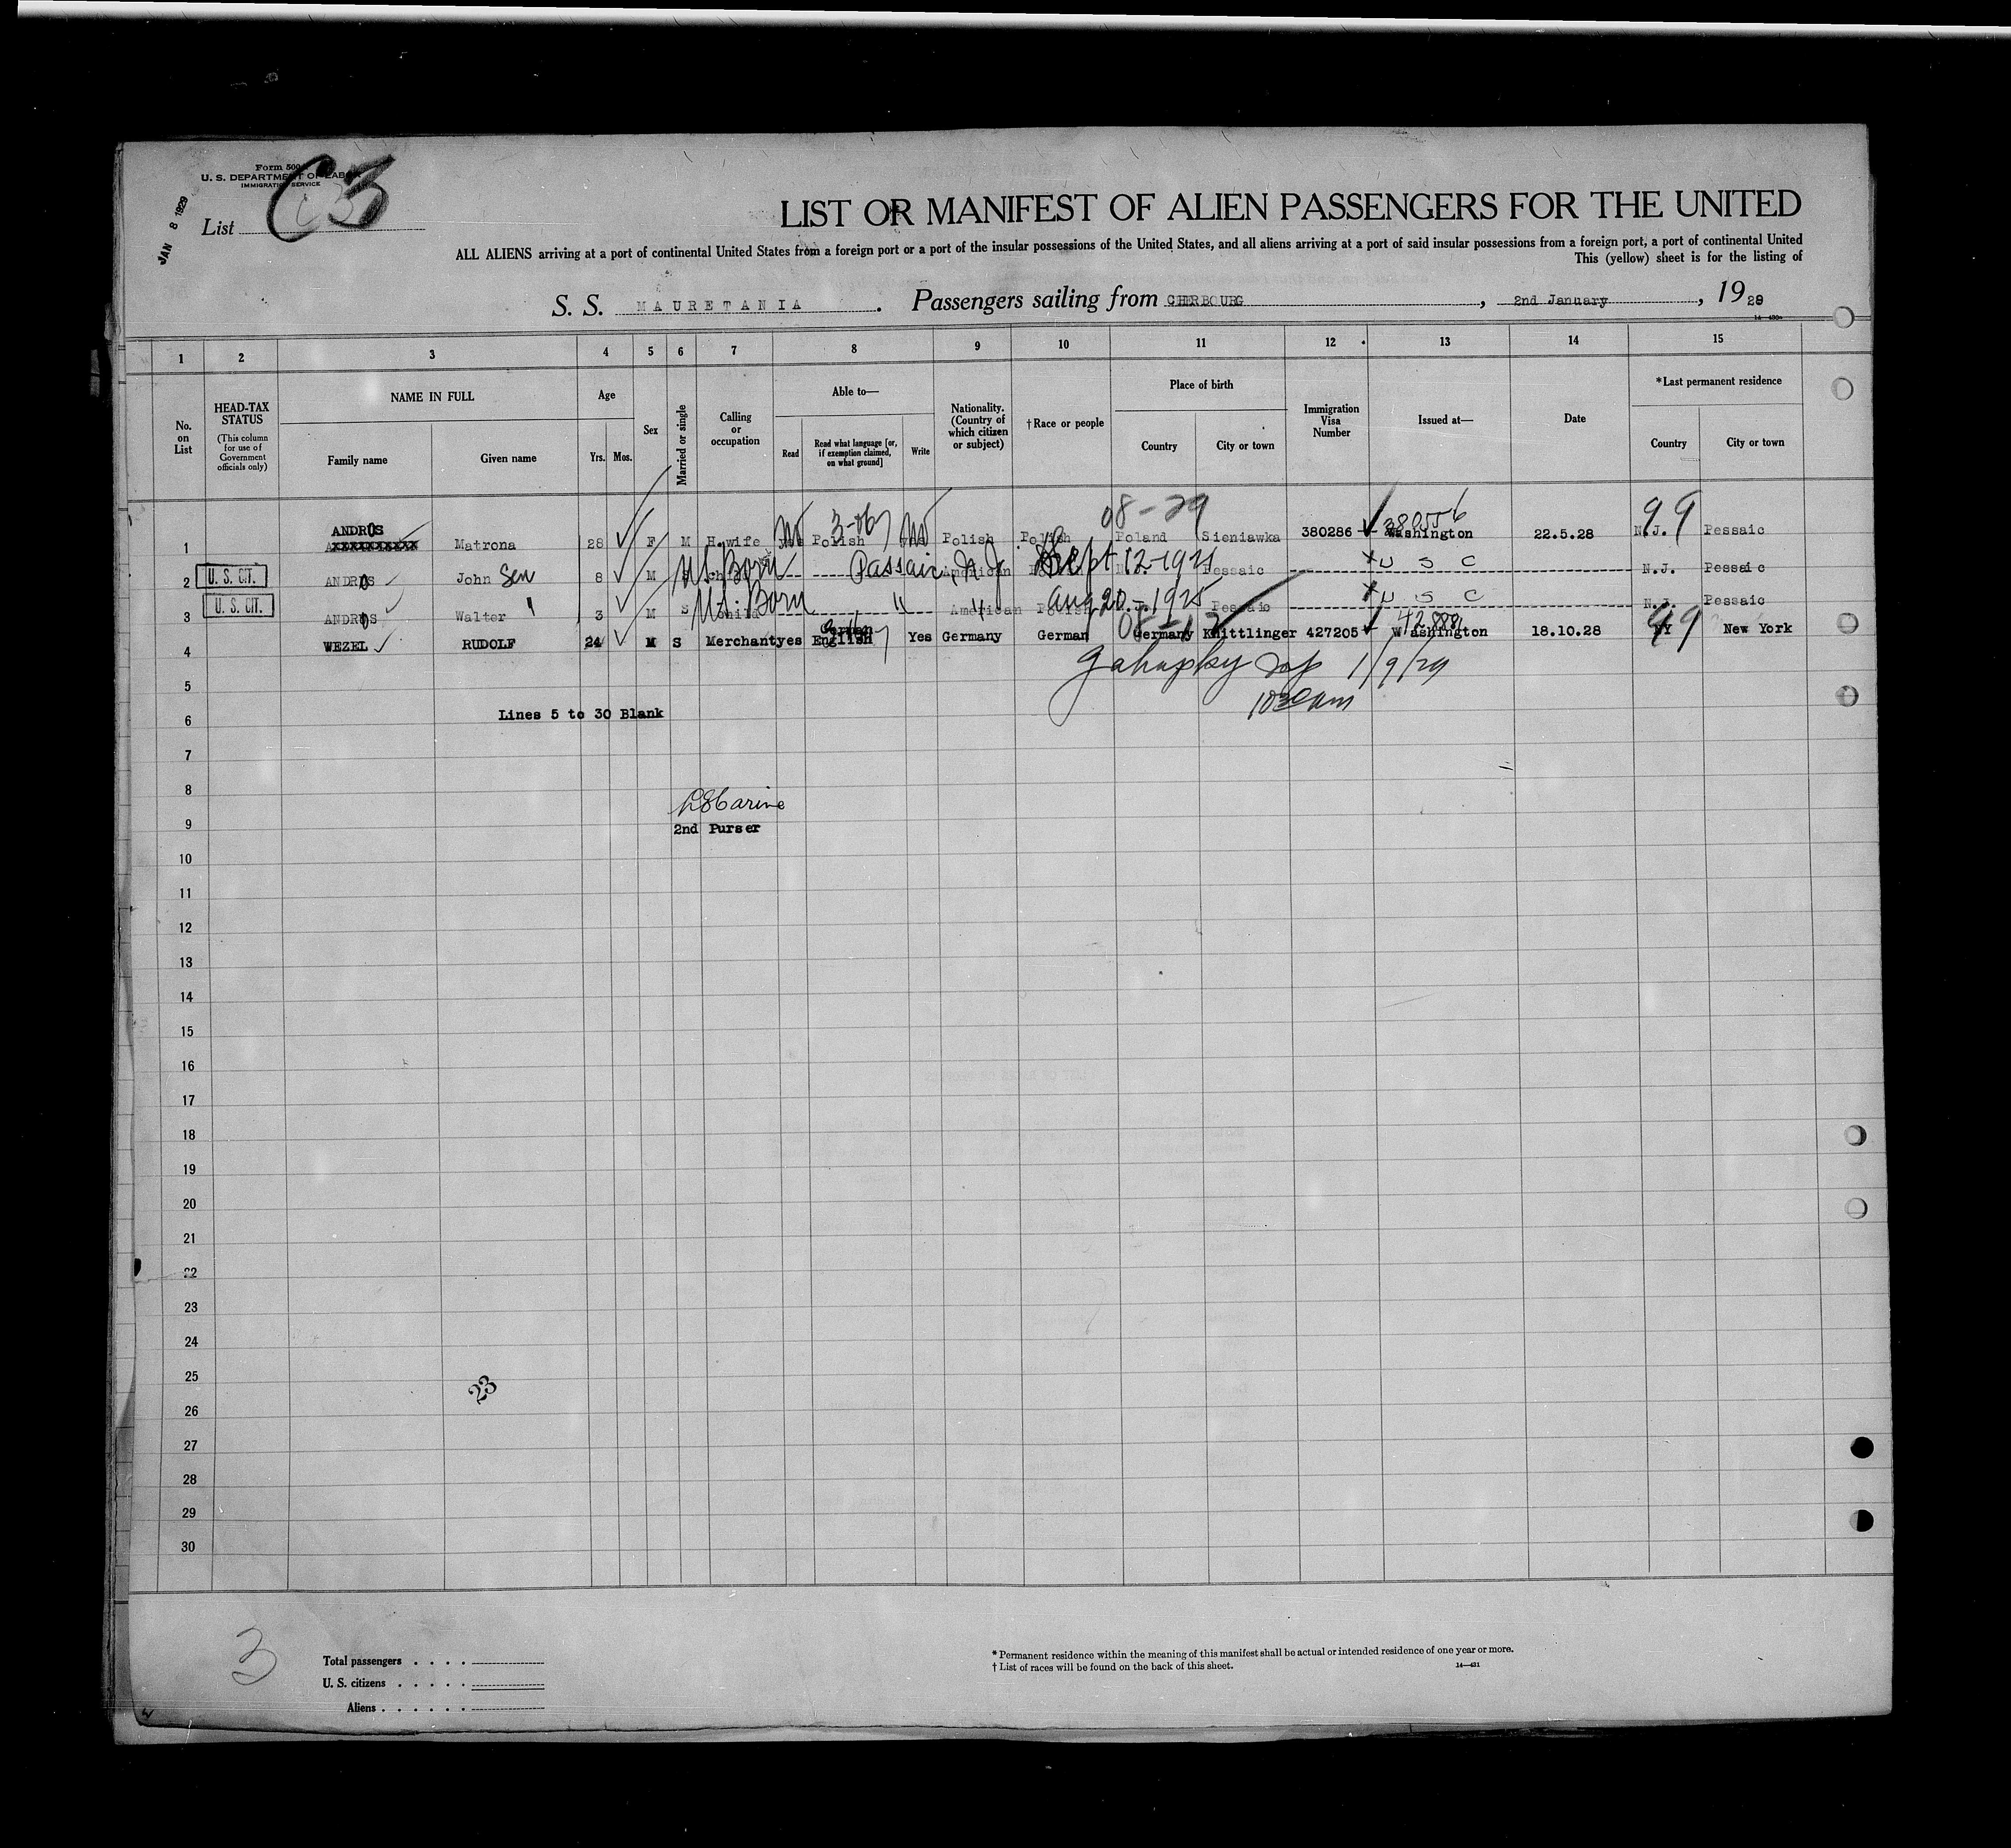 Form 500
U. S. DEPARTMENT OF LABOR
IMMIGRATION SERVICE
JAN 8 1929
List C3
LIST OR MANIFEST OF ALIEN PASSENGERS FOR THE UNITED
ALL ALIENS arriving at a port of continental United States from a foreign port or a port of the insular possessions of the United States, and all aliens arriving at a port of said insular possessions from a foreign port, a port of continental United
This (yellow) sheet is for the listing of
S. S. MAURETANIA. Passengers sailing from CHERBOURG, 2nd January, 1929
1 2 3 4 5 6 7 8 9 10 11 12 13 14 15
No. on List
HEAD-TAX STATUS
(This column for use of Government officials only)
NAME IN FULL
Family name
Given name
Age
Yrs. Mos.
Sex
Married or single
Calling or occupation
Able to—
Read
Read what language [or, if exemption claimed, on what ground]
Write
Nationality. (Country of which citizen or subject)
†Race or people
Place of birth
Country
City or town
Immigration Visa Number
Issued at—
Date
*Last permanent residence
Country
City or town
08-29
3-06
380556
99
1 ANDROS Matrona 28 F M H.wife yes Polish yes Polish Polish Poland Sieniawka 380286 Washington 22.5.28 N.J. Pessaic
2 U. S. CIT. ANDROS John Sen 8 M US. Born Passaic, N J American Sept 12-1921 Pessaic U S C N.J. Pessaic
3 U. S. CIT. ANDROS Walter " 3 M S US. Born child " " American Polish Aug 20-1925 Pessaic U S C N.J. Pessaic
4 WEZEL RUDOLF 24 M S Merchant yes German English Yes Germany German Germany Knittlinger 427205 Washington 18.10.28 NY New York
99
5
1/9/29
10 30 am
6 Lines 5 to 30 Blank
7
8
9
2nd Purser
10
11
12
13
14
15
16
17
18
19
20
21
22
23
24
25
23
26
27
28
29
30
3
Total passengers
U. S. citizens
Aliens
* Permanent residence within the meaning of this manifest shall be actual or intended residence of one year or more.
† List of races will be found on the back of this sheet.
14—431